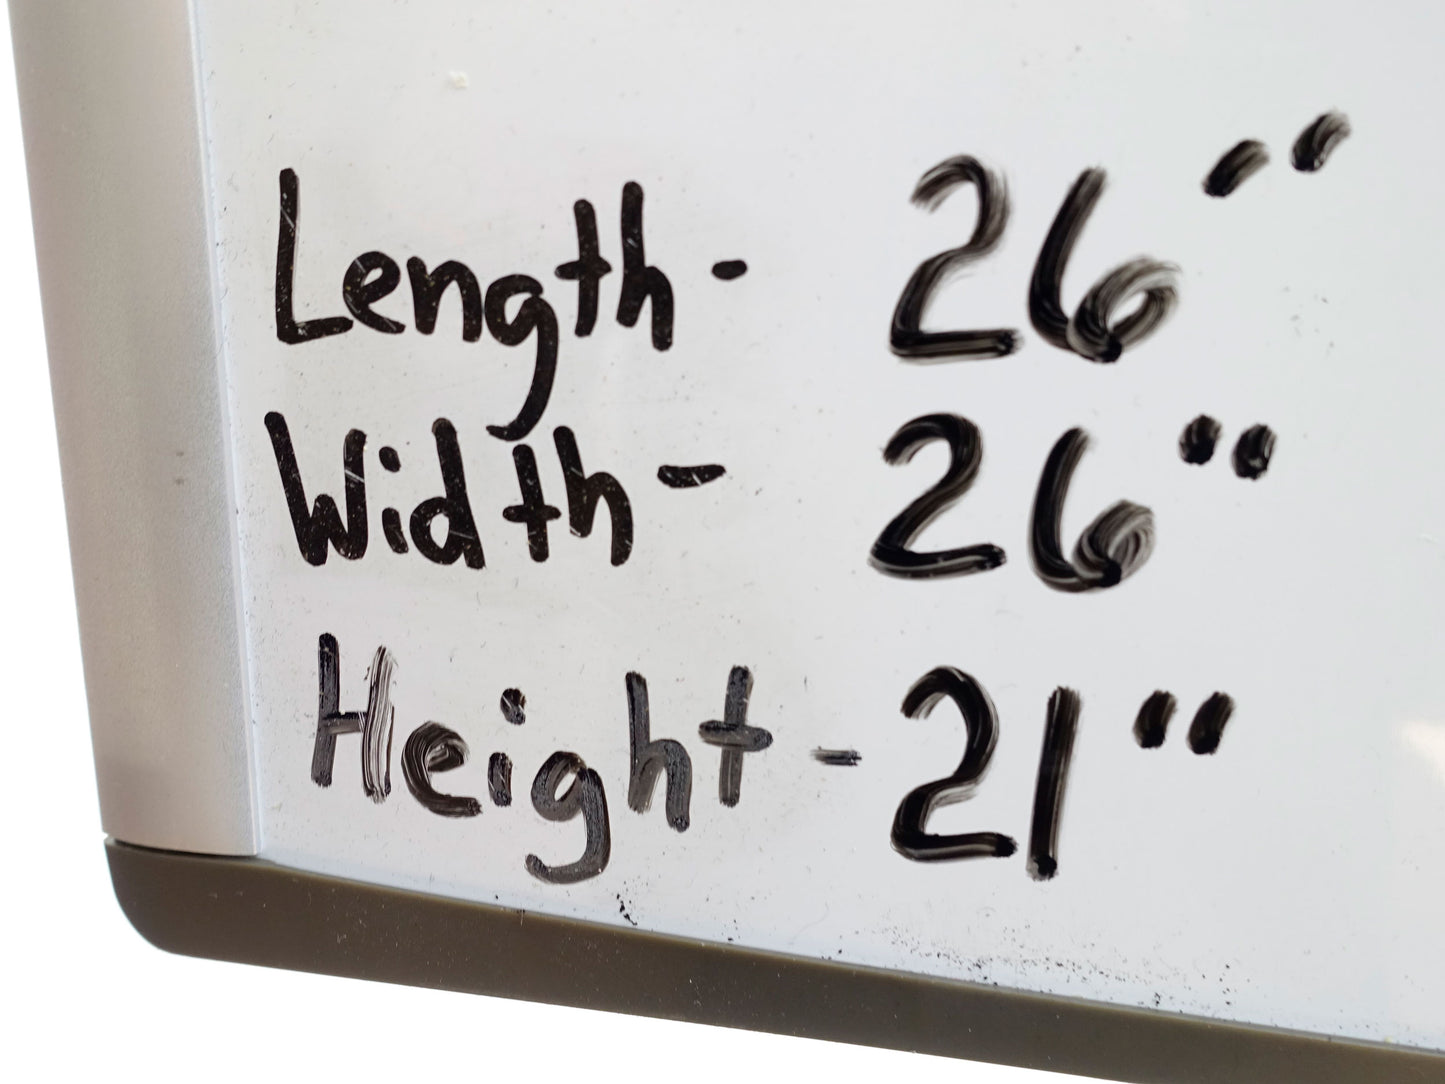 Length - 26"
Width - 26"
Height - 21"